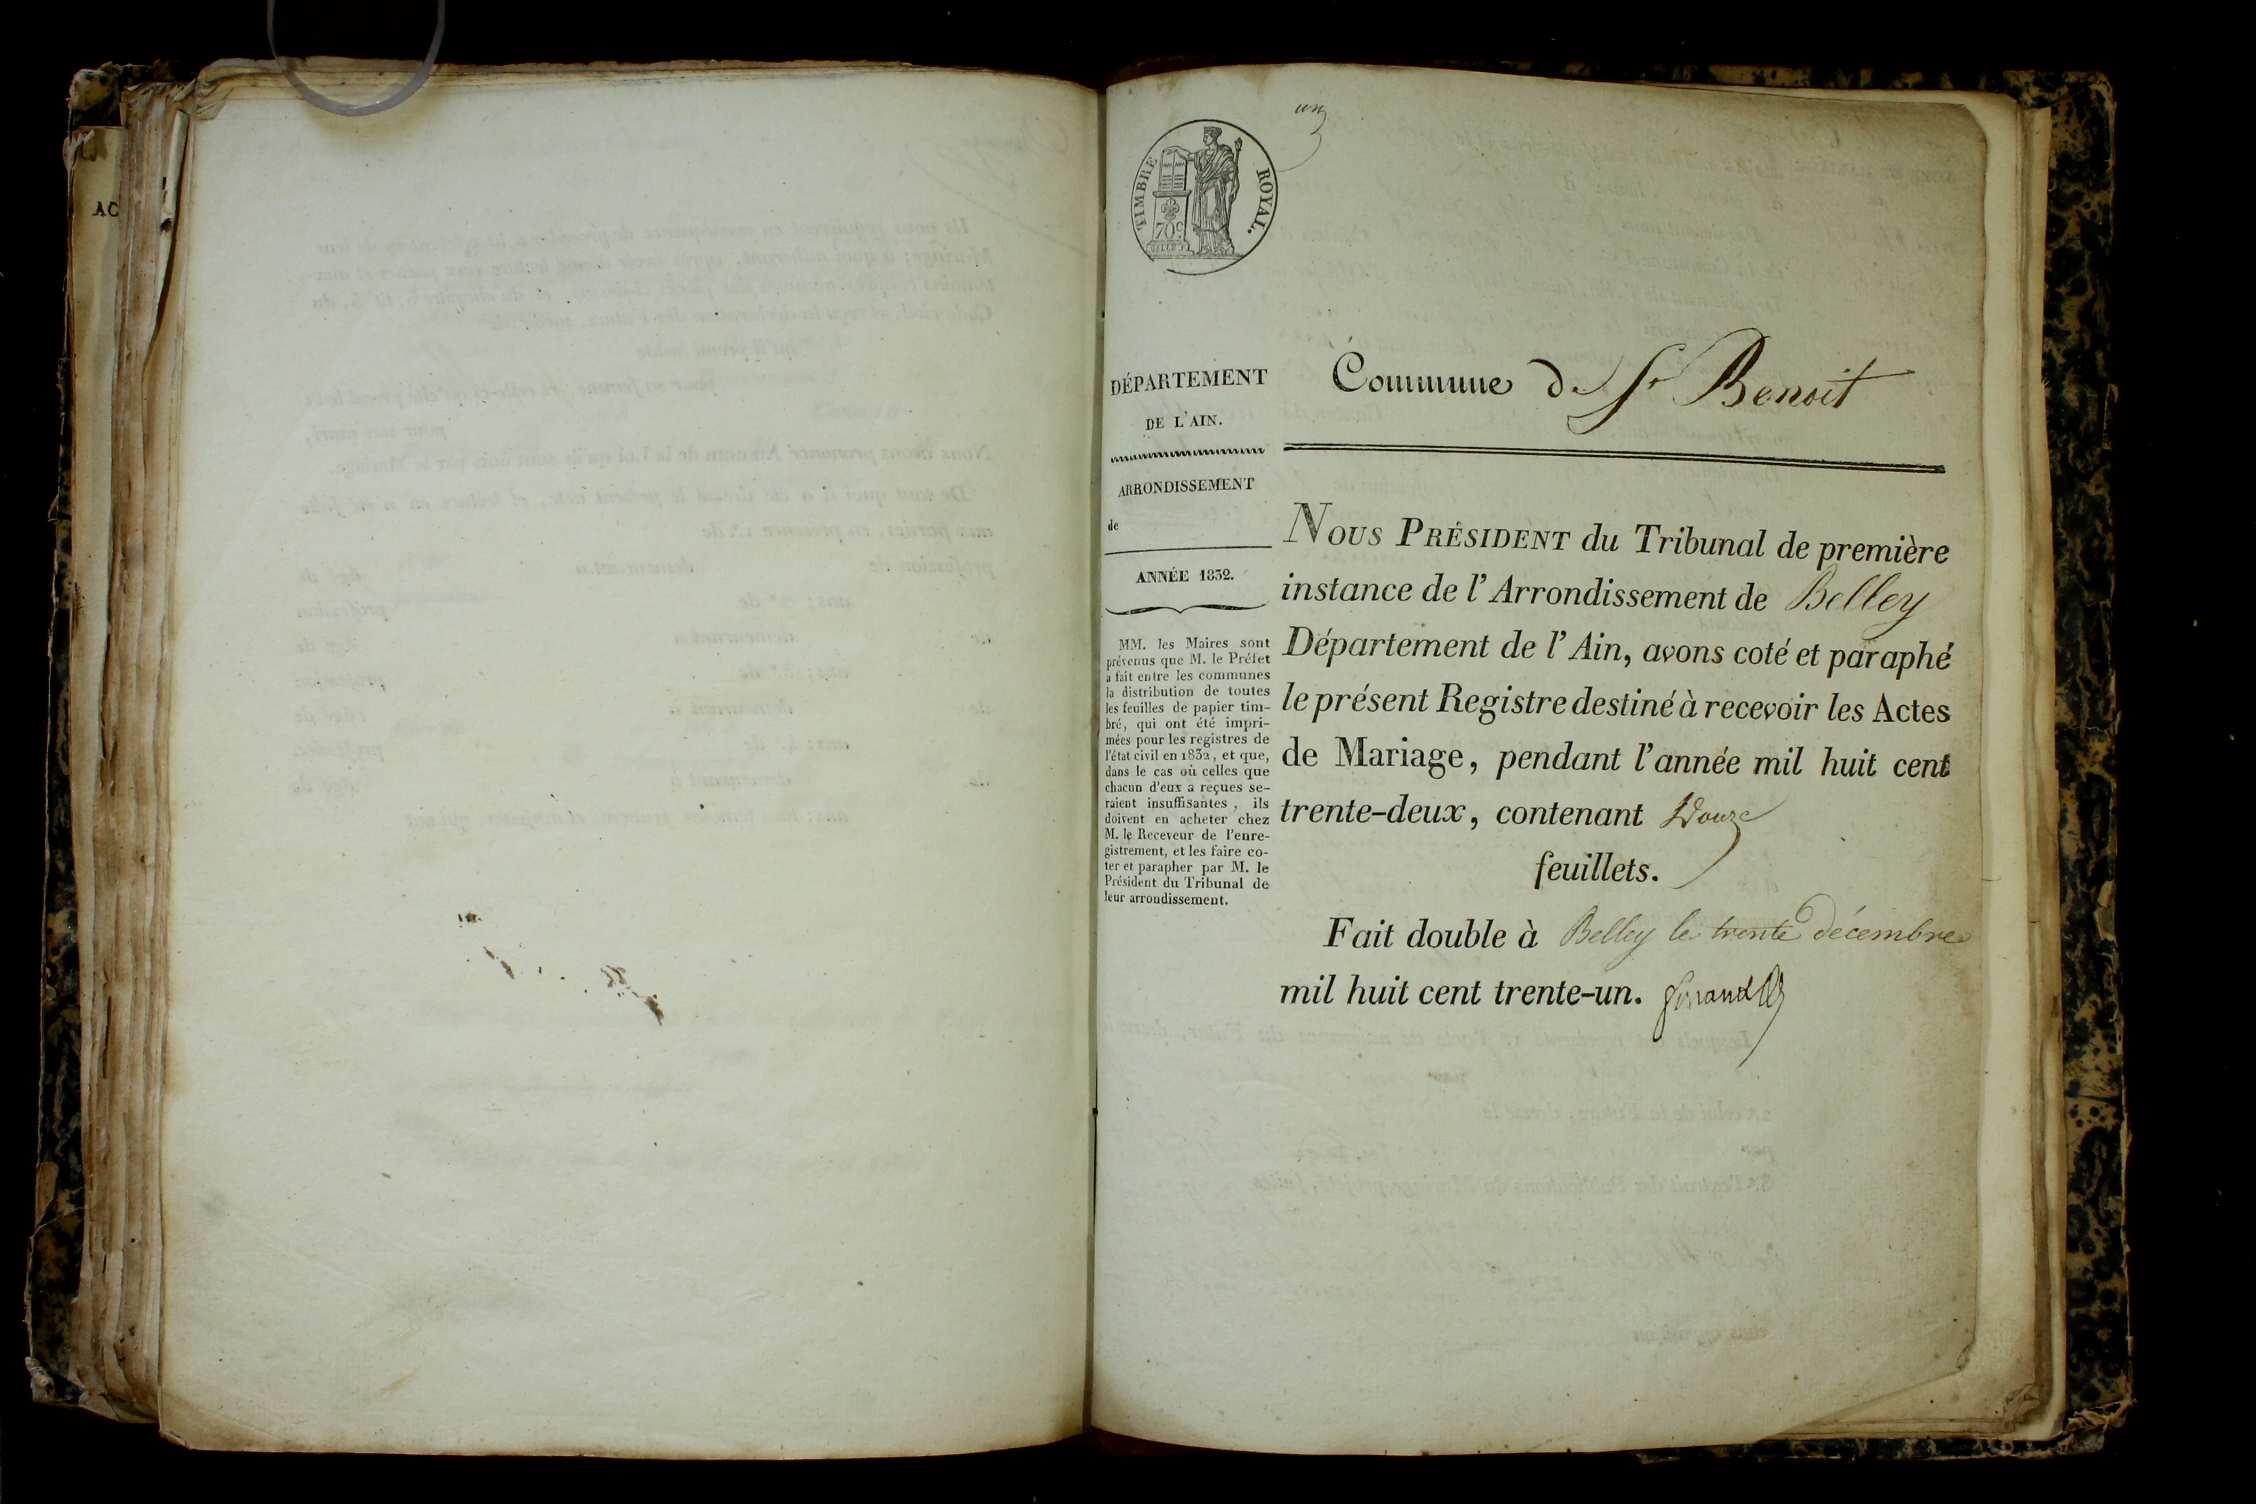 AC
un
TIMBRE ROYAL.
70c
DÉPARTEMENT
DE L'AIN.
ARRONDISSEMENT
de
ANNÉE 1832.
MM. les Maires sont
prévenus que M. le Préfet
a fait entre les communes
la distribution de toutes
les feuilles de papier tim-
bré, qui ont été impri-
mées pour les registres de
l'état civil en 1832, et que,
dans le cas où celles que
chacun d'eux a reçues se-
raient insuffisantes, ils
doivent en acheter chez
M. le Receveur de l'enre-
gistrement, et les faire co-
ter et parapher par M. le
Président du Tribunal de
leur arrondissement.
Commune de St Benoit
NOUS PRÉSIDENT du Tribunal de première
instance de l'Arrondissement de Belley
Département de l'Ain, avons coté et paraphé
le présent Registre destiné à recevoir les Actes
de Mariage, pendant l'année mil huit cent
trente-deux, contenant Douze
feuillets.
Fait double à Belley le trente décembre
mil huit cent trente-un.